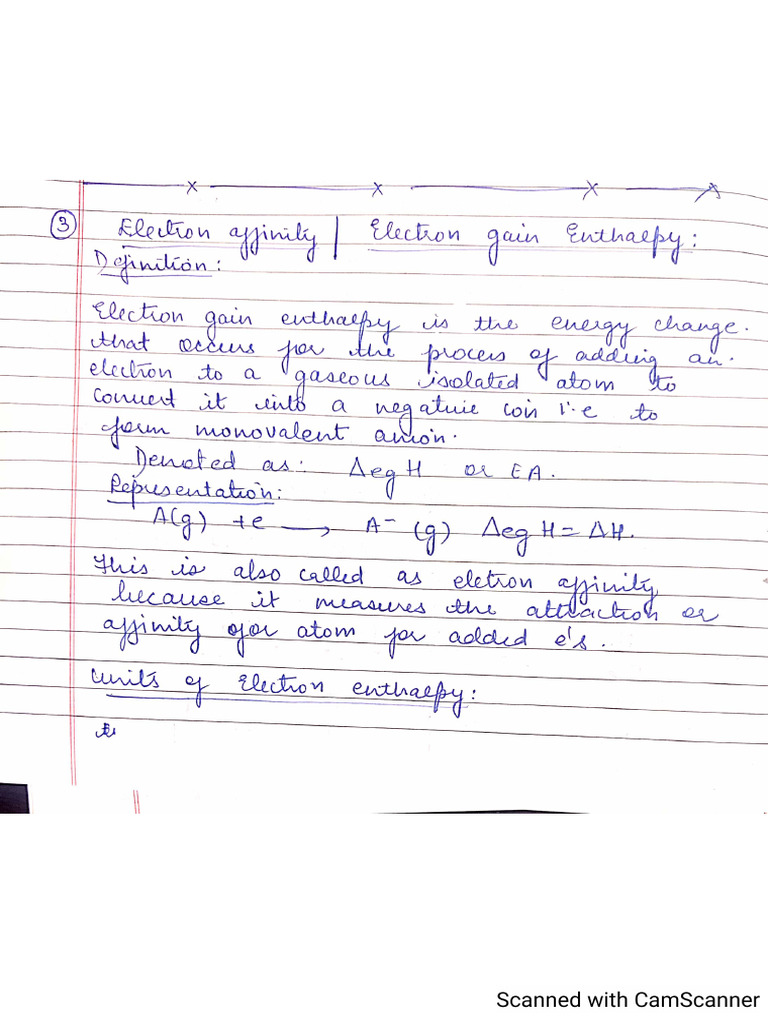 ③ Electron affinity | Electron gain Enthalpy:
Definition:
Electron gain enthalpy is the energy change.
that occurs for the process of adding an.
electron to a gaseous isolated atom to
convert it into a negative ion i.e to
form monovalent anion.
Denoted as: ΔegH or EA.
Representation:
A(g) + e ⟶ A⁻ (g) ΔegH = ΔH.
This is also called as eletron affinity
because it measures the attraction or
affinity of atom for added e's.
Units of Electron enthalpy:
Scanned with CamScanner